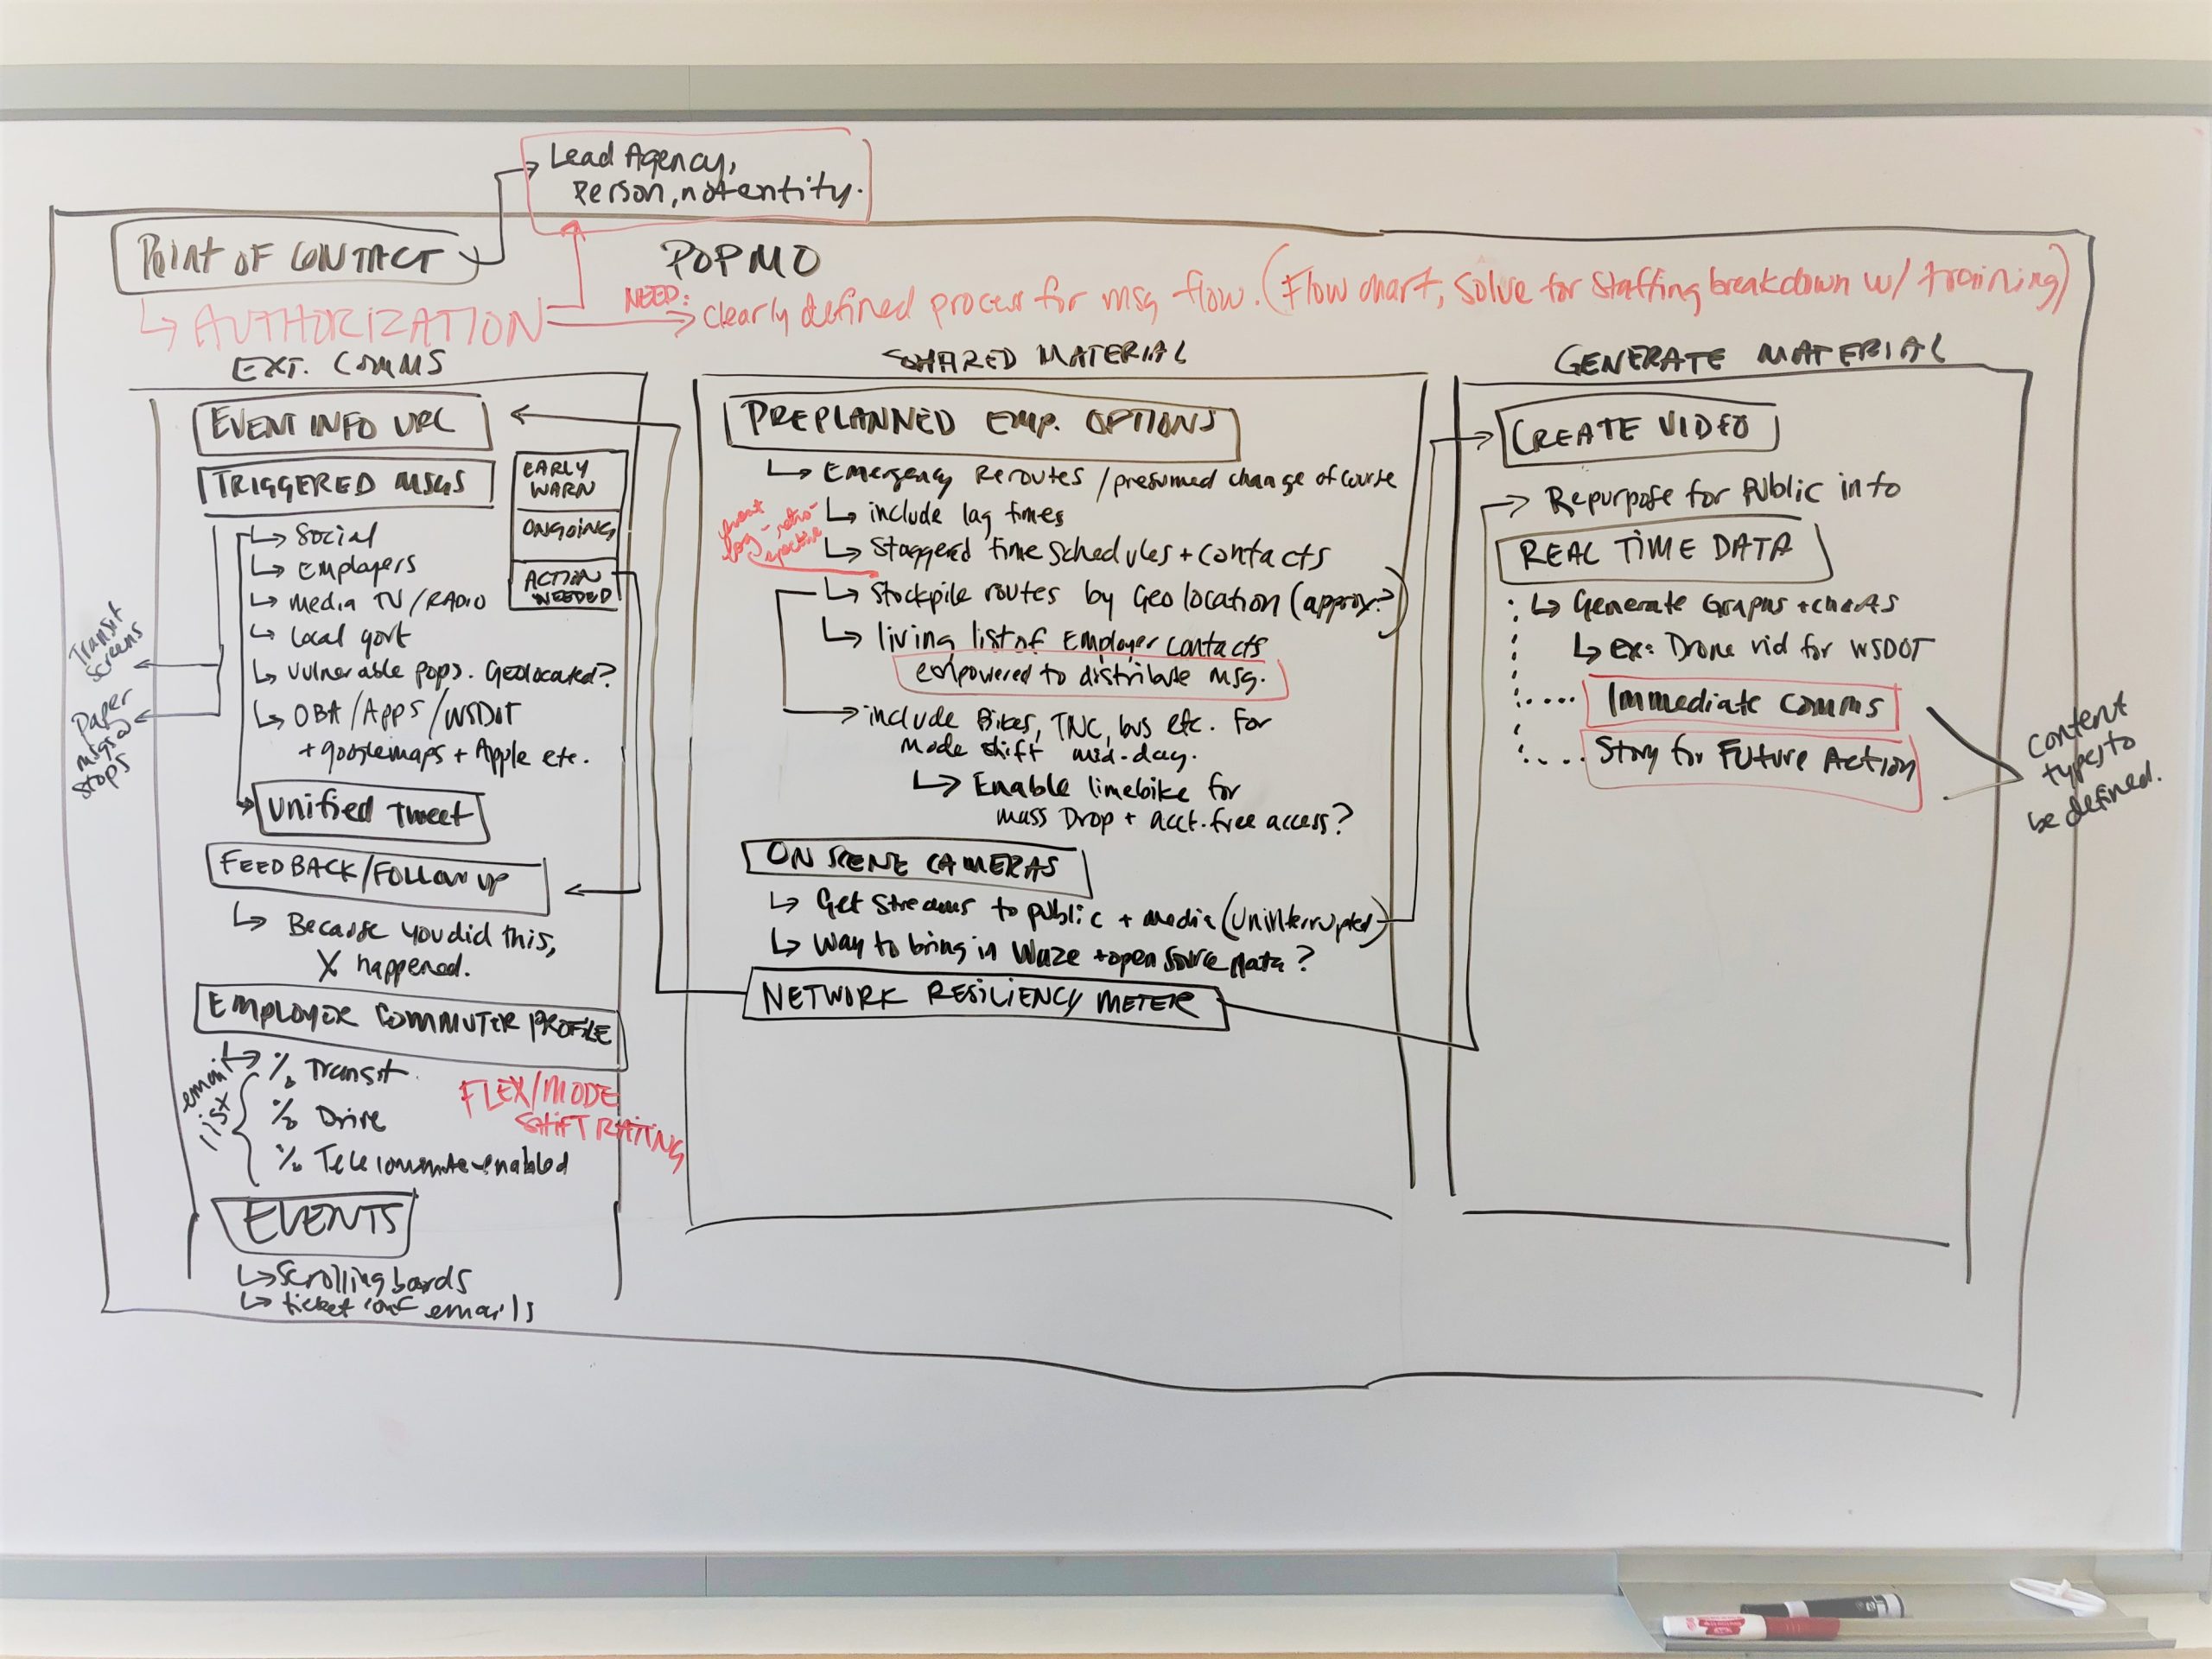 Lead Agency,
Person, not entity.
POINT OF CONTACT
POPMO
↳ AUTHORIZATION
NEED:
clearly defined process for msg flow. (Flow chart, solve for staffing breakdown w/ training)
EXT. COMMS
EVENT INFO URL
TRIGGERED MSGS
EARLY
WARN
ONGOING
ACTION
NEEDED
↳ Social
↳ Employers
↳ media TV/RADIO
↳ Local govt
↳ Vulnerable pops. Geolocated?
↳ OBA/Apps/WSDOT
+ googlemaps + Apple etc.
Unified Tweet
Transit
screens
Paper
msgs @
stops
FEEDBACK/FOLLOW UP
↳ Because you did this,
X happened.
EMPLOYER COMMUTER PROFILE
email
list
% Transit
% Drive
% Telecommute-enabled
FLEX/MODE
SHIFT RATING
EVENTS
↳ Scrolling boards
↳ ticket conf emails
SHARED MATERIAL
PREPLANNED EMP. OPTIONS
↳ Emergency Reroutes/presumed change of course
↳ include lag times
↳ Staggered time schedules + contacts
log - retro-
spective
↳ Stockpile routes by Geolocation (approx?)
↳ living list of Employer contacts
empowered to distribute msg.
include Bikes, TNC, bus etc. For
Mode shift mid-day.
↳ Enable limebike for
mass Drop + acct. free access?
ON SCENE CAMERAS
↳ Get Streams to public + media (uninterrupted)
↳ Way to bring in Waze + open source data?
NETWORK RESILIENCY METER
GENERATE MATERIAL
CREATE VIDEO
Repurpose for Public info
REAL TIME DATA
↳ Generate Graphs + charts
↳ ex: Drone vid for WSDOT
Immediate Comms
Story for Future Action
content
types to
be defined.